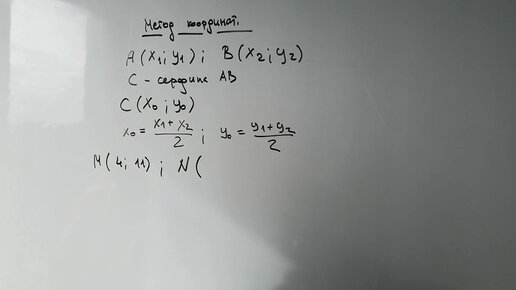 Метод координат.
A(x₁; y₁); B(x₂; y₂)
C - середина AB
C(x₀; y₀)
x₀ = (x₁ + x₂)/2; y₀ = (y₁ + y₂)/2
M(4; 11); N(